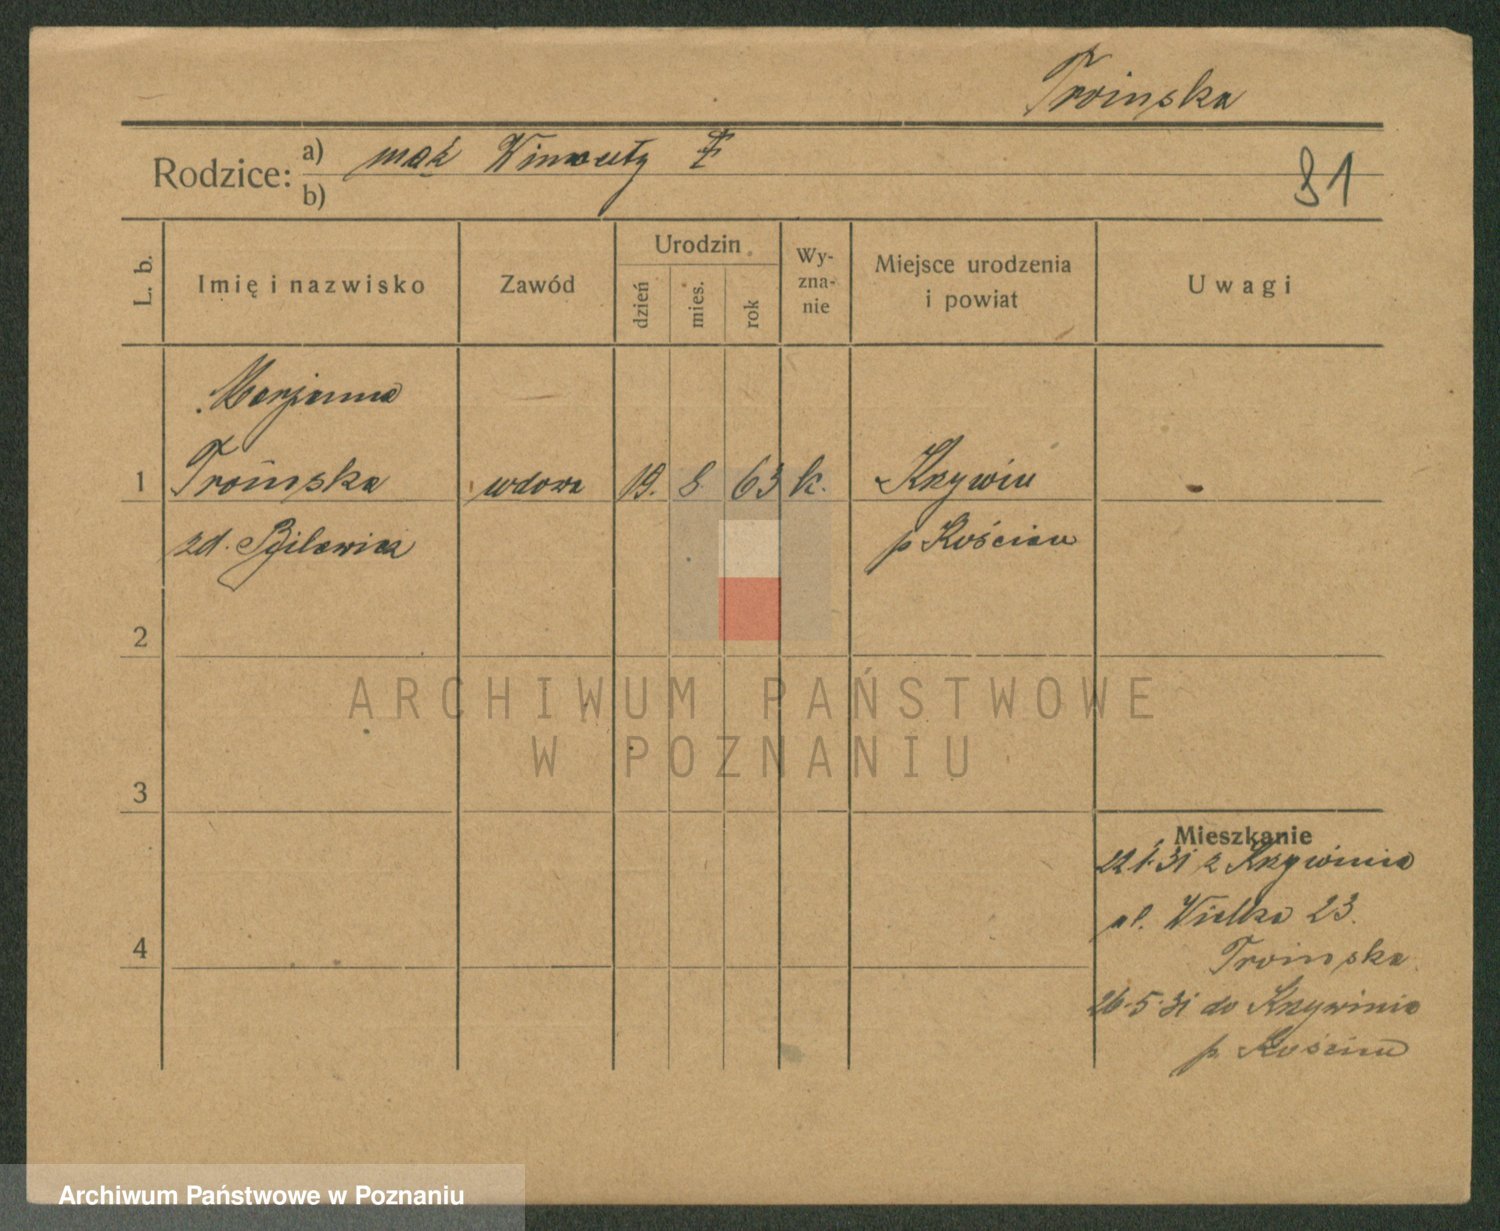 Troinska
Rodzice: a) mąż Wincenty ‡
b)
31
L. b.
Imię i nazwisko
Zawód
Urodzin
dzień
mies.
rok
Wy-
zna-
nie
Miejsce urodzenia
i powiat
Uwagi
Marjanna
1 Troińska wdowa 19. 8 63 k. Krzywiń
zd. Bilewicz p Kościan
2
3
4
Mieszkanie
22 1·31 z Krzywinia
ul. Wielka 23.
Troinska
26·5·31 do Krzywinia
p. Kościan
ARCHIWUM PAŃSTWOWE
W POZNANIU
Archiwum Państwowe w Poznaniu